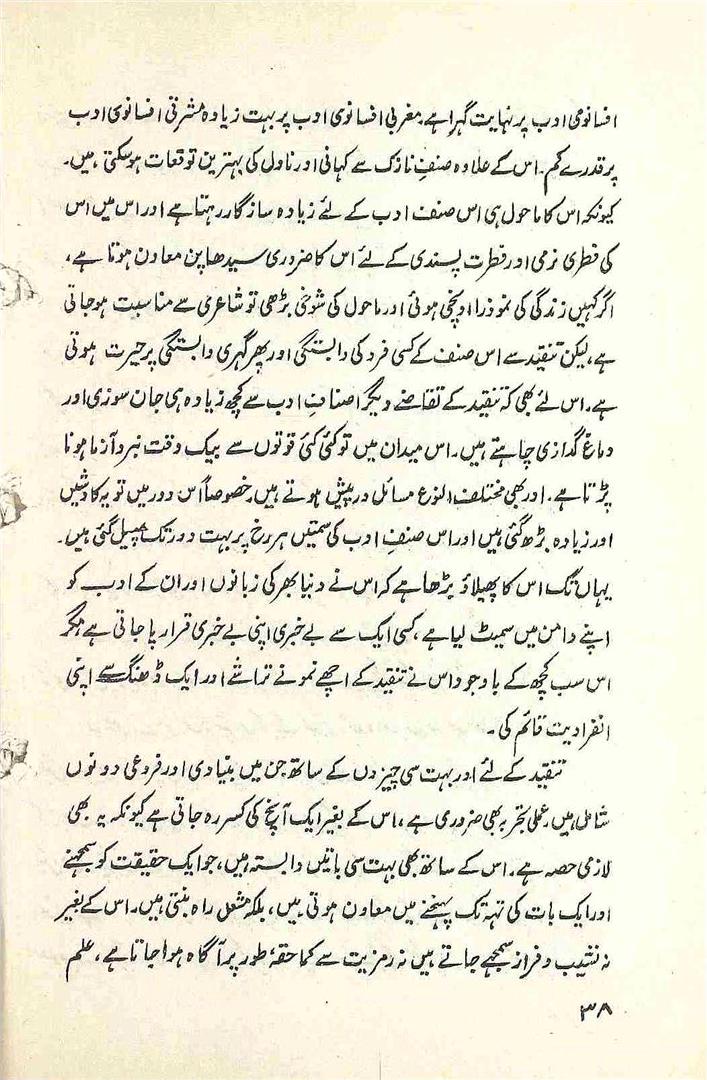 افسانوی ادب پر نہایت گہرا ہے۔ مغربی افسانوی ادب پر بہت زیادہ مشرقی افسانوی ادب
پر قدرے کم۔ اس کے علاوہ صنفِ نازک سے کہانی اور ناول کی بہترین توقعات ہوسکتی ہیں۔
کیونکہ اس کا ماحول ہی اس صنف ادب کے لئے زیادہ سازگار رہتا ہے اور اس میں اس
کی فطری نرمی اور فطرت پسندی کے لئے اس کا ضروری سیدھا پن معاون ہوتا ہے،
اگر کہیں زندگی کی نمو ذرا اونچی ہوئی اور ماحول کی شوخی بڑھی تو شاعری سے مناسبت ہوجاتی
ہے، لیکن تنقید سے اس صنف کے کسی فرد کی وابستگی اور پھر گہری وابستگی پر حیرت ہوتی
ہے۔ اس لئے بھی کہ تنقید کے تقاضے دیگر اصنافِ ادب سے کچھ زیادہ ہی جان سوزی اور
دماغ گدازی چاہتے ہیں۔ اس میدان میں تو کئی کئی قوتوں سے بیک وقت نبرد آزما ہونا
پڑتا ہے۔ اور بھی مختلف النوع مسائل درپیش ہوتے ہیں۔ خصوصاً اس دور میں تو یہ کاوشیں
اور زیادہ بڑھ گئی ہیں اور اس صنفِ ادب کی سمتیں ہر رخ پر بہت دور تک پھیل گئی ہیں۔
یہاں تک اس کا پھیلاؤ بڑھا ہے کہ اس نے دنیا بھر کی زبانوں اور ان کے ادب کو
اپنے دامن میں سمیٹ لیا ہے، کسی ایک سے بے خبری اپنی بے خبری قرار پا جاتی ہے مگر
اس سب کچھ کے باوجود اس نے تنقید کے اچھے نمونے تراشے اور ایک ڈھنگ سے اپنی
انفرادیت قائم کی۔
تنقید کے لئے اور بہت سی چیزوں کے ساتھ جن میں بنیادی اور فروعی دونوں
شامل ہیں، عملی تجربہ بھی ضروری ہے، اس کے بغیر ایک آنچ کی کسر رہ جاتی ہے کیونکہ یہ بھی
لازمی حصہ ہے۔ اس کے ساتھ بھی بہت سی باتیں وابستہ ہیں، جو ایک حقیقت کو سمجھنے
اور ایک بات کی تہہ تک پہنچنے میں معاون ہوتی ہیں، بلکہ مشعل راہ بنتی ہیں۔ اس کے بغیر
نہ نشیب و فراز سمجھے جاتے ہیں نہ رمزیت سے کماحقہٗ طور پر آگاہ ہوا جاتا ہے، علم
۳۸